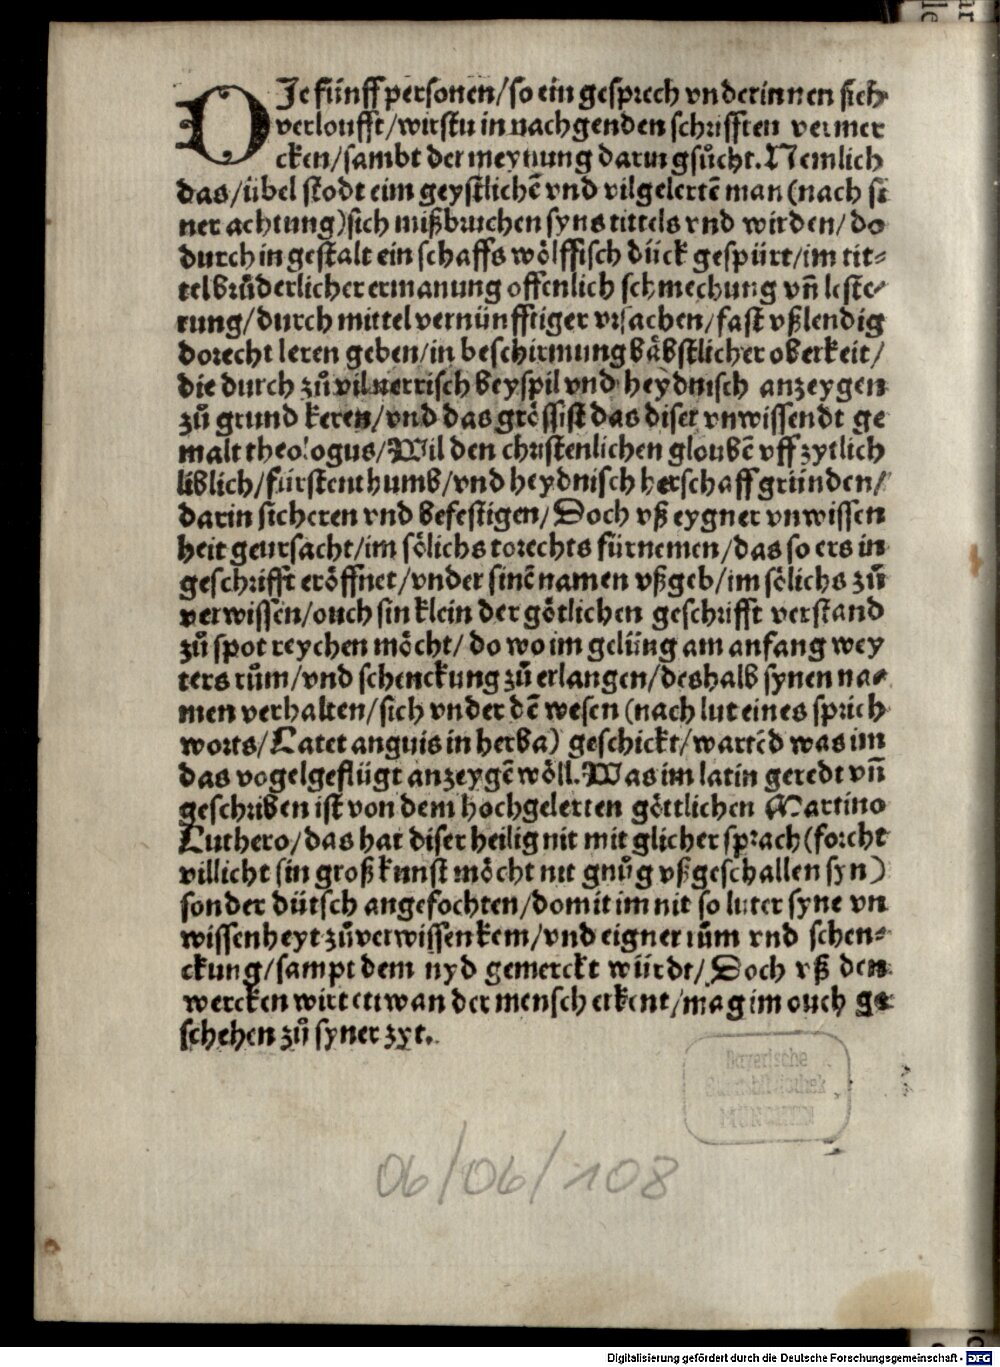 DJe fünff personen/so ein gesprech vnderinnen sich
verloufft/wirstu in nachgenden schrifften vermer
cken/sambt der meynung darin gsůcht. Nemlich
das/übel stodt eim geystlichē vnd vilgelertē man (nach si
ner achtung)sich mißbruchen syns tittels vnd wirden/do
durch in gestalt ein schaffs wölffisch dück gespürt/im tit⸗
tel brůderlicher ermanung offenlich schmechung vn̄ leste⸗
rung/durch mittel vernünfftiger vrsachen/fast vßlendig
dorecht leren geben/in beschirmung bäbstlicher oberkeit/
die durch zů vil nerrisch beyspil vnd heydnisch anzeygen
zů grund keren/vnd das grössist das diser vnwissendt ge
malt theologus/Wil den christenlichen gloubē vff zytlich
liblich/fürstenthumb/vnd heydnisch herschaff gründen/
darin sicheren vnd befestigen/Doch vß eygner vnwissen
heit geursacht/im sölichs torechts fürnemen/das so ers in
geschrifft eröffnet/vnder sinē namen vßgeb/im sölichs zů
verwissen/ouch sin klein der götlichen geschrifft verstand
zů spot reychen möcht/do wo im gelüng am anfang wey
ters rům/vnd schenckung zů erlangen/deshalb synen na⸗
men verhalten/sich vnder dē wesen (nach lut eines sprich
worts/Latet anguis in herba) geschickt/wartēd was im
das vogelgeflügt anzeygē wöll. Was im latin geredt vn̄
geschriben ist von dem hochgelerten göttlichen Martino
Luthero/das hat diser heilig nit mit glicher sprach (forcht
villicht sin groß kunst möcht nit gnůg vßgeschallen syn)
sonder dütsch angefochten/domit im nit so luter syne vn
wissenheyt zůverwissen kem/vnd eigner rům vnd schen⸗
ckung/sampt dem nyd gemerckt würdt/Doch vß den
wercken wirt etwan der mensch erkent/mag im ouch ge
schehen zů syner zyt.
Bayerische
Staatsbibliothek
MÜNCHEN
06/06/108
Digitalisierung gefördert durch die Deutsche Forschungsgemeinschaft - DFG